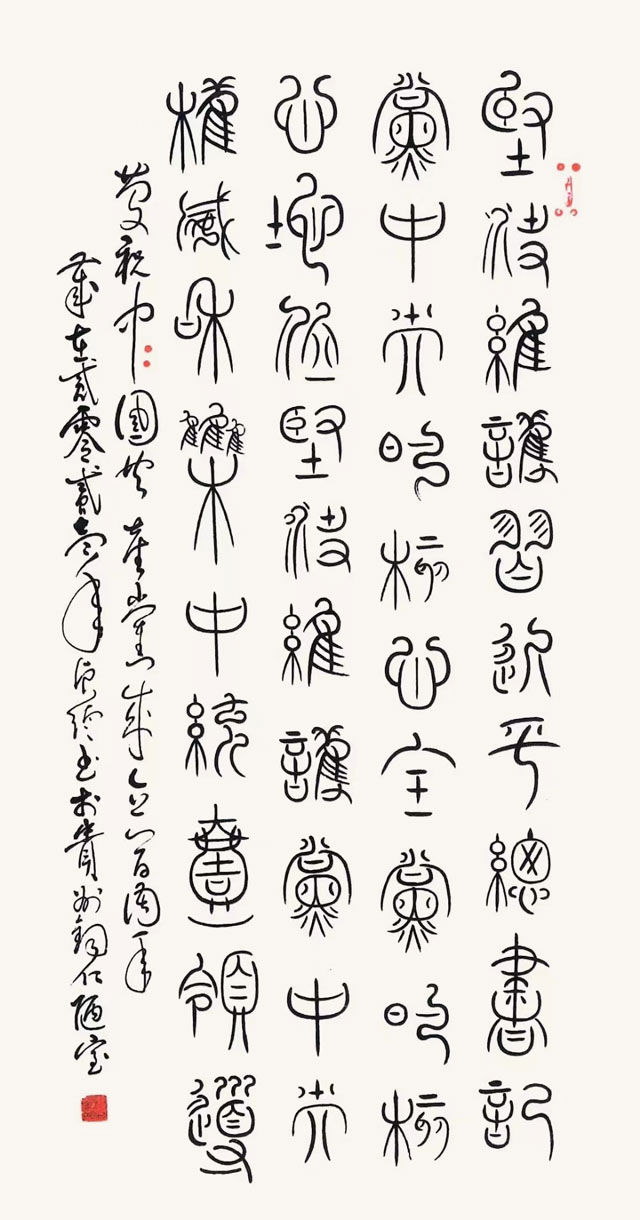 堅決維護習近平總書記
黨中央的核心全黨的核
心地位堅決維護黨中央
權威和集中統壹領導
慶祝中國共產黨成立一百周年
歲在貳零貳壹年書於貴州銅仁陋室